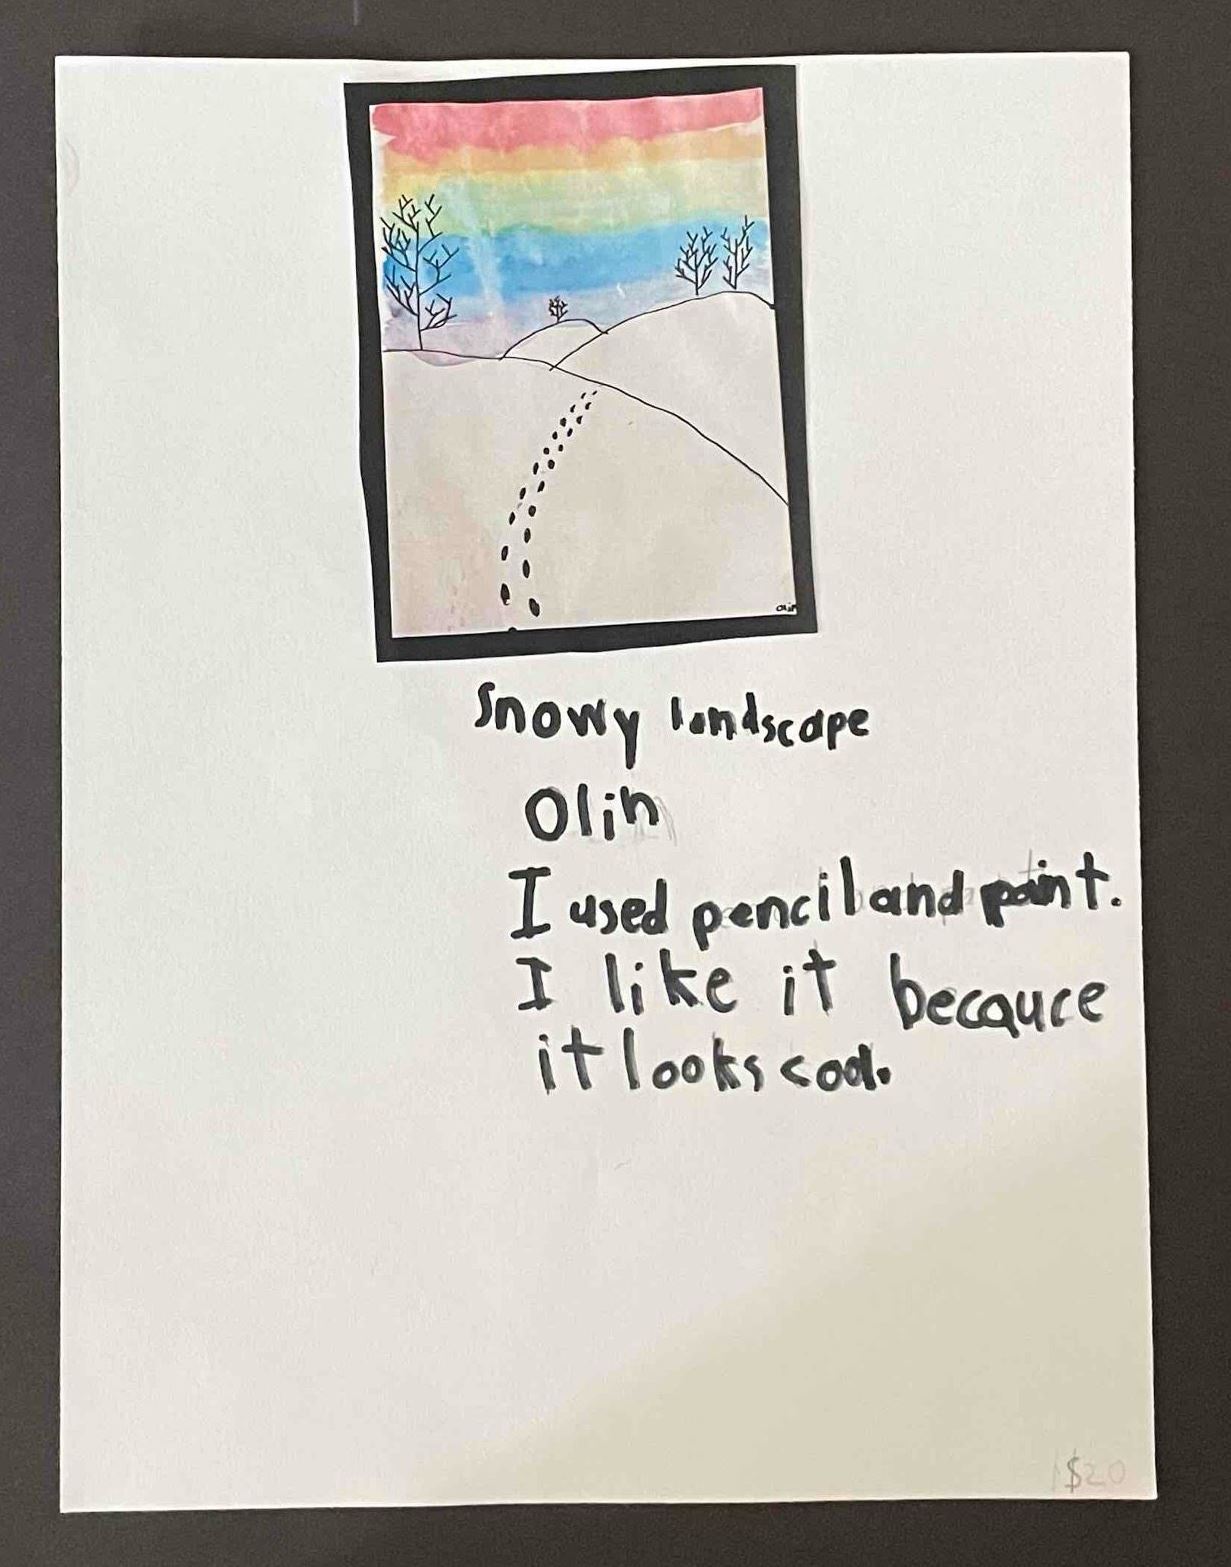 Olin
Snowy landscape
Olin
I used pencil and paint.
I like it becauce
it looks cool.
$20